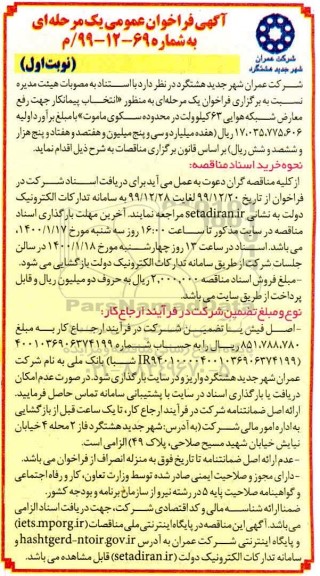 آگهی فراخوان عمومی یک مرحله‌ای
به شماره ۶۹-۱۲-۹۹/م
(نوبت اول)
شرکت عمران
شهر جدید هشتگرد
شرکت عمران شهر جدید هشتگرد در نظر دارد با استناد به مصوبات هیئت مدیره
نسبت به برگزاری فراخوان یک مرحله‌ای به منظور «انتخاب پیمانکار جهت رفع
معارض شبکه هوایی ۶۳ کیلوولت در محدوده سکوی ماموت» با مبلغ برآورد اولیه
۱۷،۰۳۵،۷۷۵،۶۰۶ ریال (هفده میلیارد و سی و پنج میلیون و هفتصد و هفتاد و پنج هزار
و ششصد و شش ریال) بر اساس قانون برگزاری مناقصات به شرح ذیل اقدام نماید.
نحوه خرید اسناد مناقصه:
از کلیه مناقصه گران دعوت به عمل می آید برای دریافت اسناد شرکت در
فراخوان از تاریخ ۹۹/۱۲/۲۰ لغایت ۹۹/۱۲/۲۸ به سامانه تدارکات الکترونیک
دولت به نشانی setadiran.ir مراجعه نمایند. آخرین مهلت بارگذاری اسناد
مناقصه در سایت مذکور تا ساعت ۱۶:۰۰ روز سه شنبه مورخ ۱۴۰۰/۱/۱۷
می باشد. اسناد در ساعت ۱۳ روز چهارشنبه مورخ ۱۴۰۰/۱/۱۸ در سالن
جلسات شرکت از طریق سامانه تدارکات الکترونیک دولت بازگشایی می شود.
-مبلغ فروش اسناد مناقصه ۲،۰۰۰،۰۰۰ ریال به حروف دو میلیون ریال و قابل
پرداخت از طریق سایت می باشد.
نوع و مبلغ تضمین شرکت در فرآیند ارجاع کار:
-اصل فیش یا تضمین شرکت در فرآیند ارجاع کار به مبلغ
۸۵۱،۷۸۸،۷۸۰ ریال را به حساب شماره ۴۰۰۱۰۳۶۹۰۶۳۷۴۱۹۹
(IR۹۴۰۱۰۰۰۰۴۰۰۱۰۳۶۹۰۶۳۷۴۱۹۹ شبا) بانک ملی به نام شرکت
عمران شهر جدید هشتگرد واریز و در سایت بارگذاری شود. در صورت عدم امکان
دریافت یا بارگذاری اسناد در سایت با پشتیبانی سامانه تماس حاصل فرمایید.
ارائه اصل ضمانتنامه شرکت در فرآیند ارجاع کار، تا یک ساعت قبل از بازگشایی
به اداره امور مالی شرکت (به آدرس: شهر جدید هشتگرد فاز ۲ محله ۴ خیابان
نیایش خیابان شهید مسیح صلاحی، پلاک ۴۹) الزامی است.
-عدم ارائه اصل ضمانتنامه تا تاریخ فوق به منزله انصراف از فراخوان می باشد.
-دارای مجوز و صلاحیت ایمنی صادر شده توسط وزارت تعاون، کار و رفاه اجتماعی
و گواهینامه صلاحیت پایه ۵ در رشته نیرو از سازمان برنامه و بودجه کشور.
ضمنا ارائه شناسه مالی و کد اقتصادی شرکت، جهت دریافت اسناد الزامی
می باشد. آگهی این مناقصه در پایگاه اینترنتی ملی مناقصات (iets.mporg.ir)
و پایگاه اینترنتی شرکت عمران به آدرس hashtgerd-ntoir.gov.ir و
سامانه تدارکات الکترونیک دولت (setadiran.ir) قابل مشاهده می باشد.